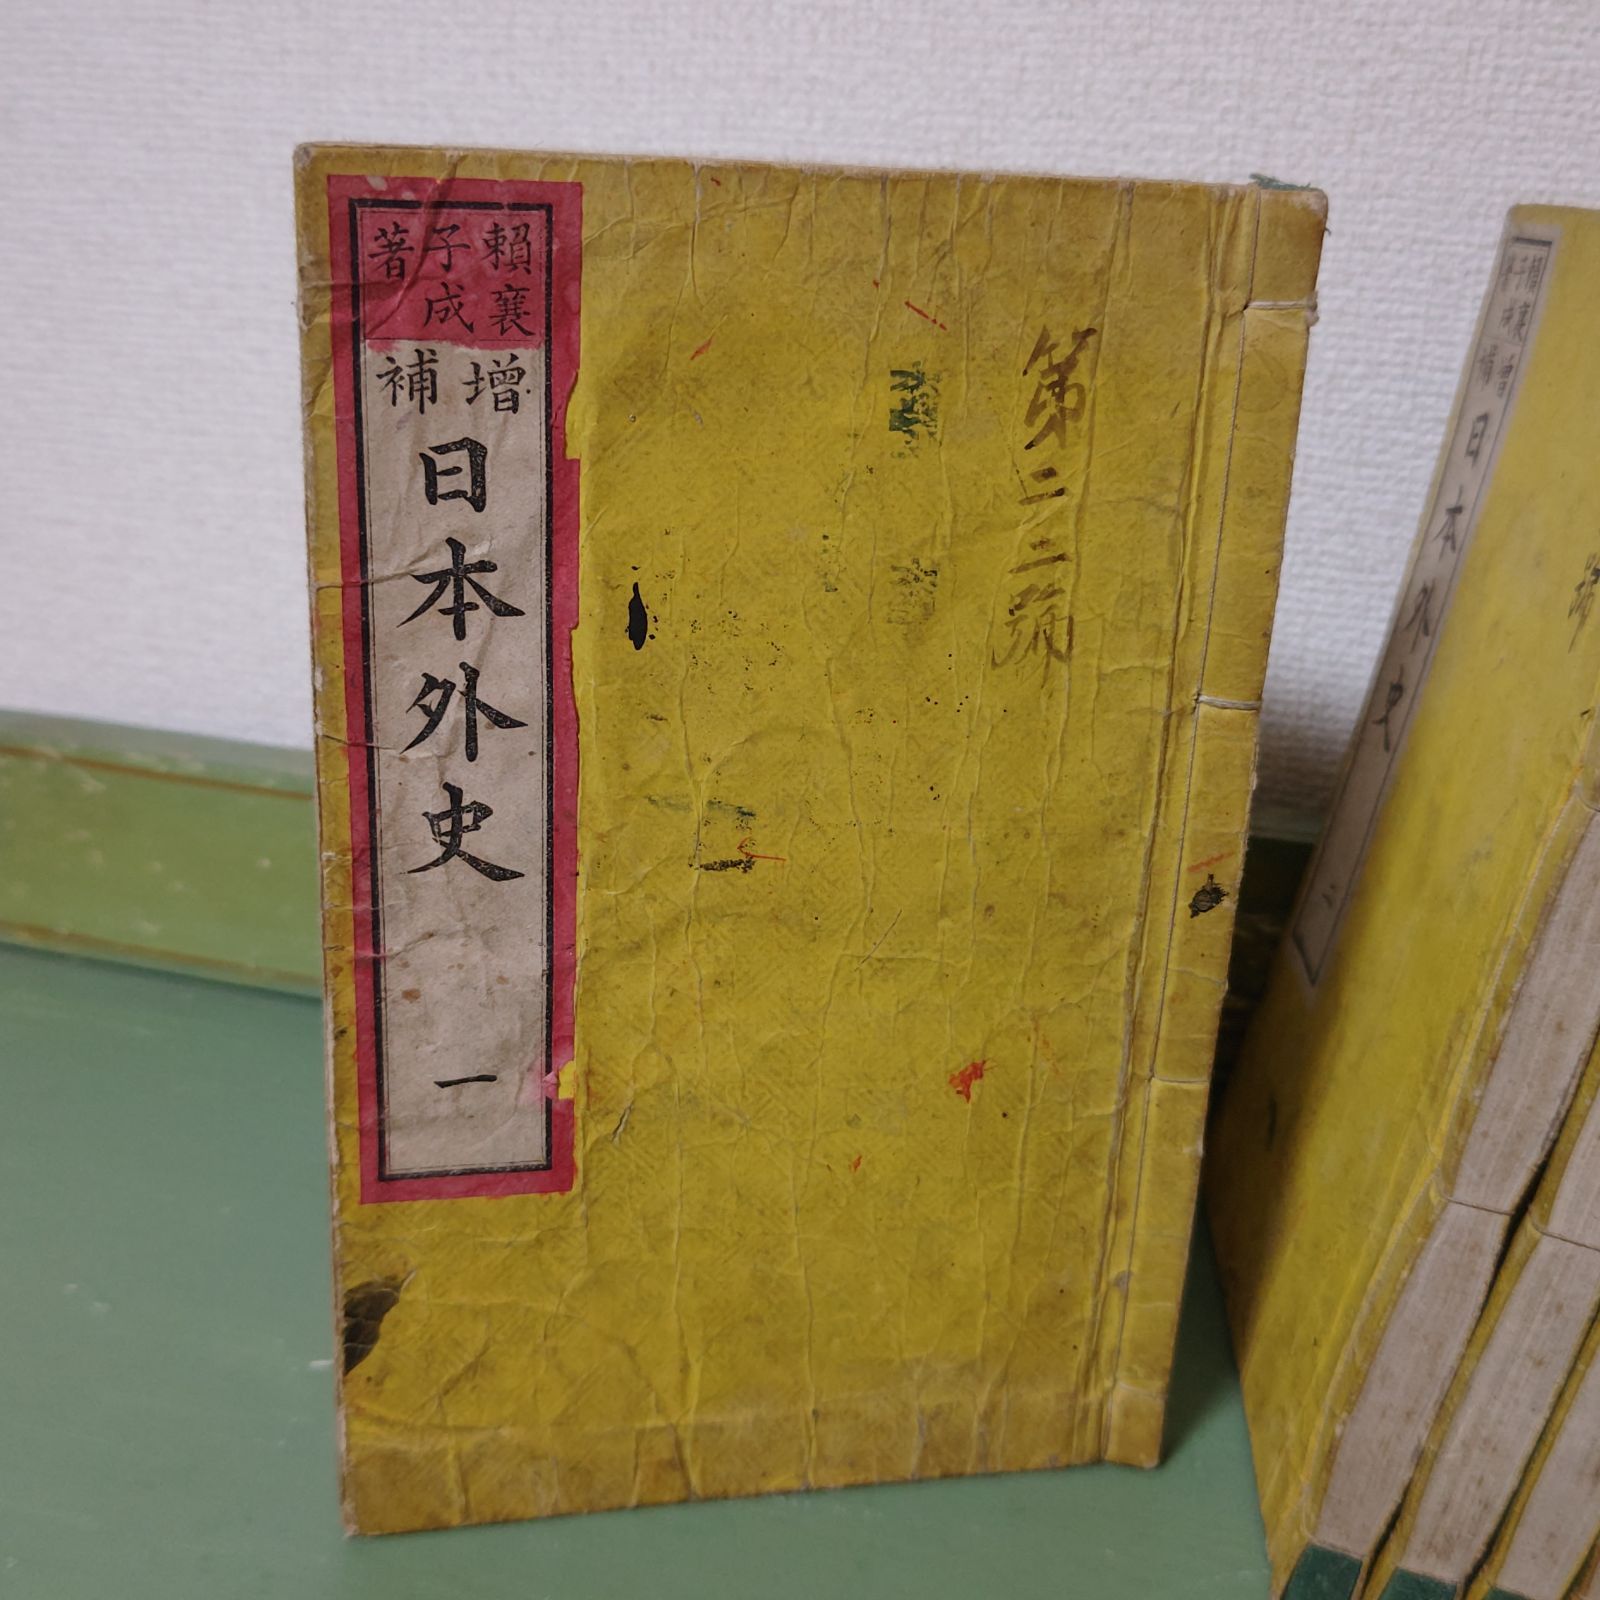 賴襄
子成
著
增補
日本外史
一
第二二號
賴襄
子成
著
增補
日本外史
二
號